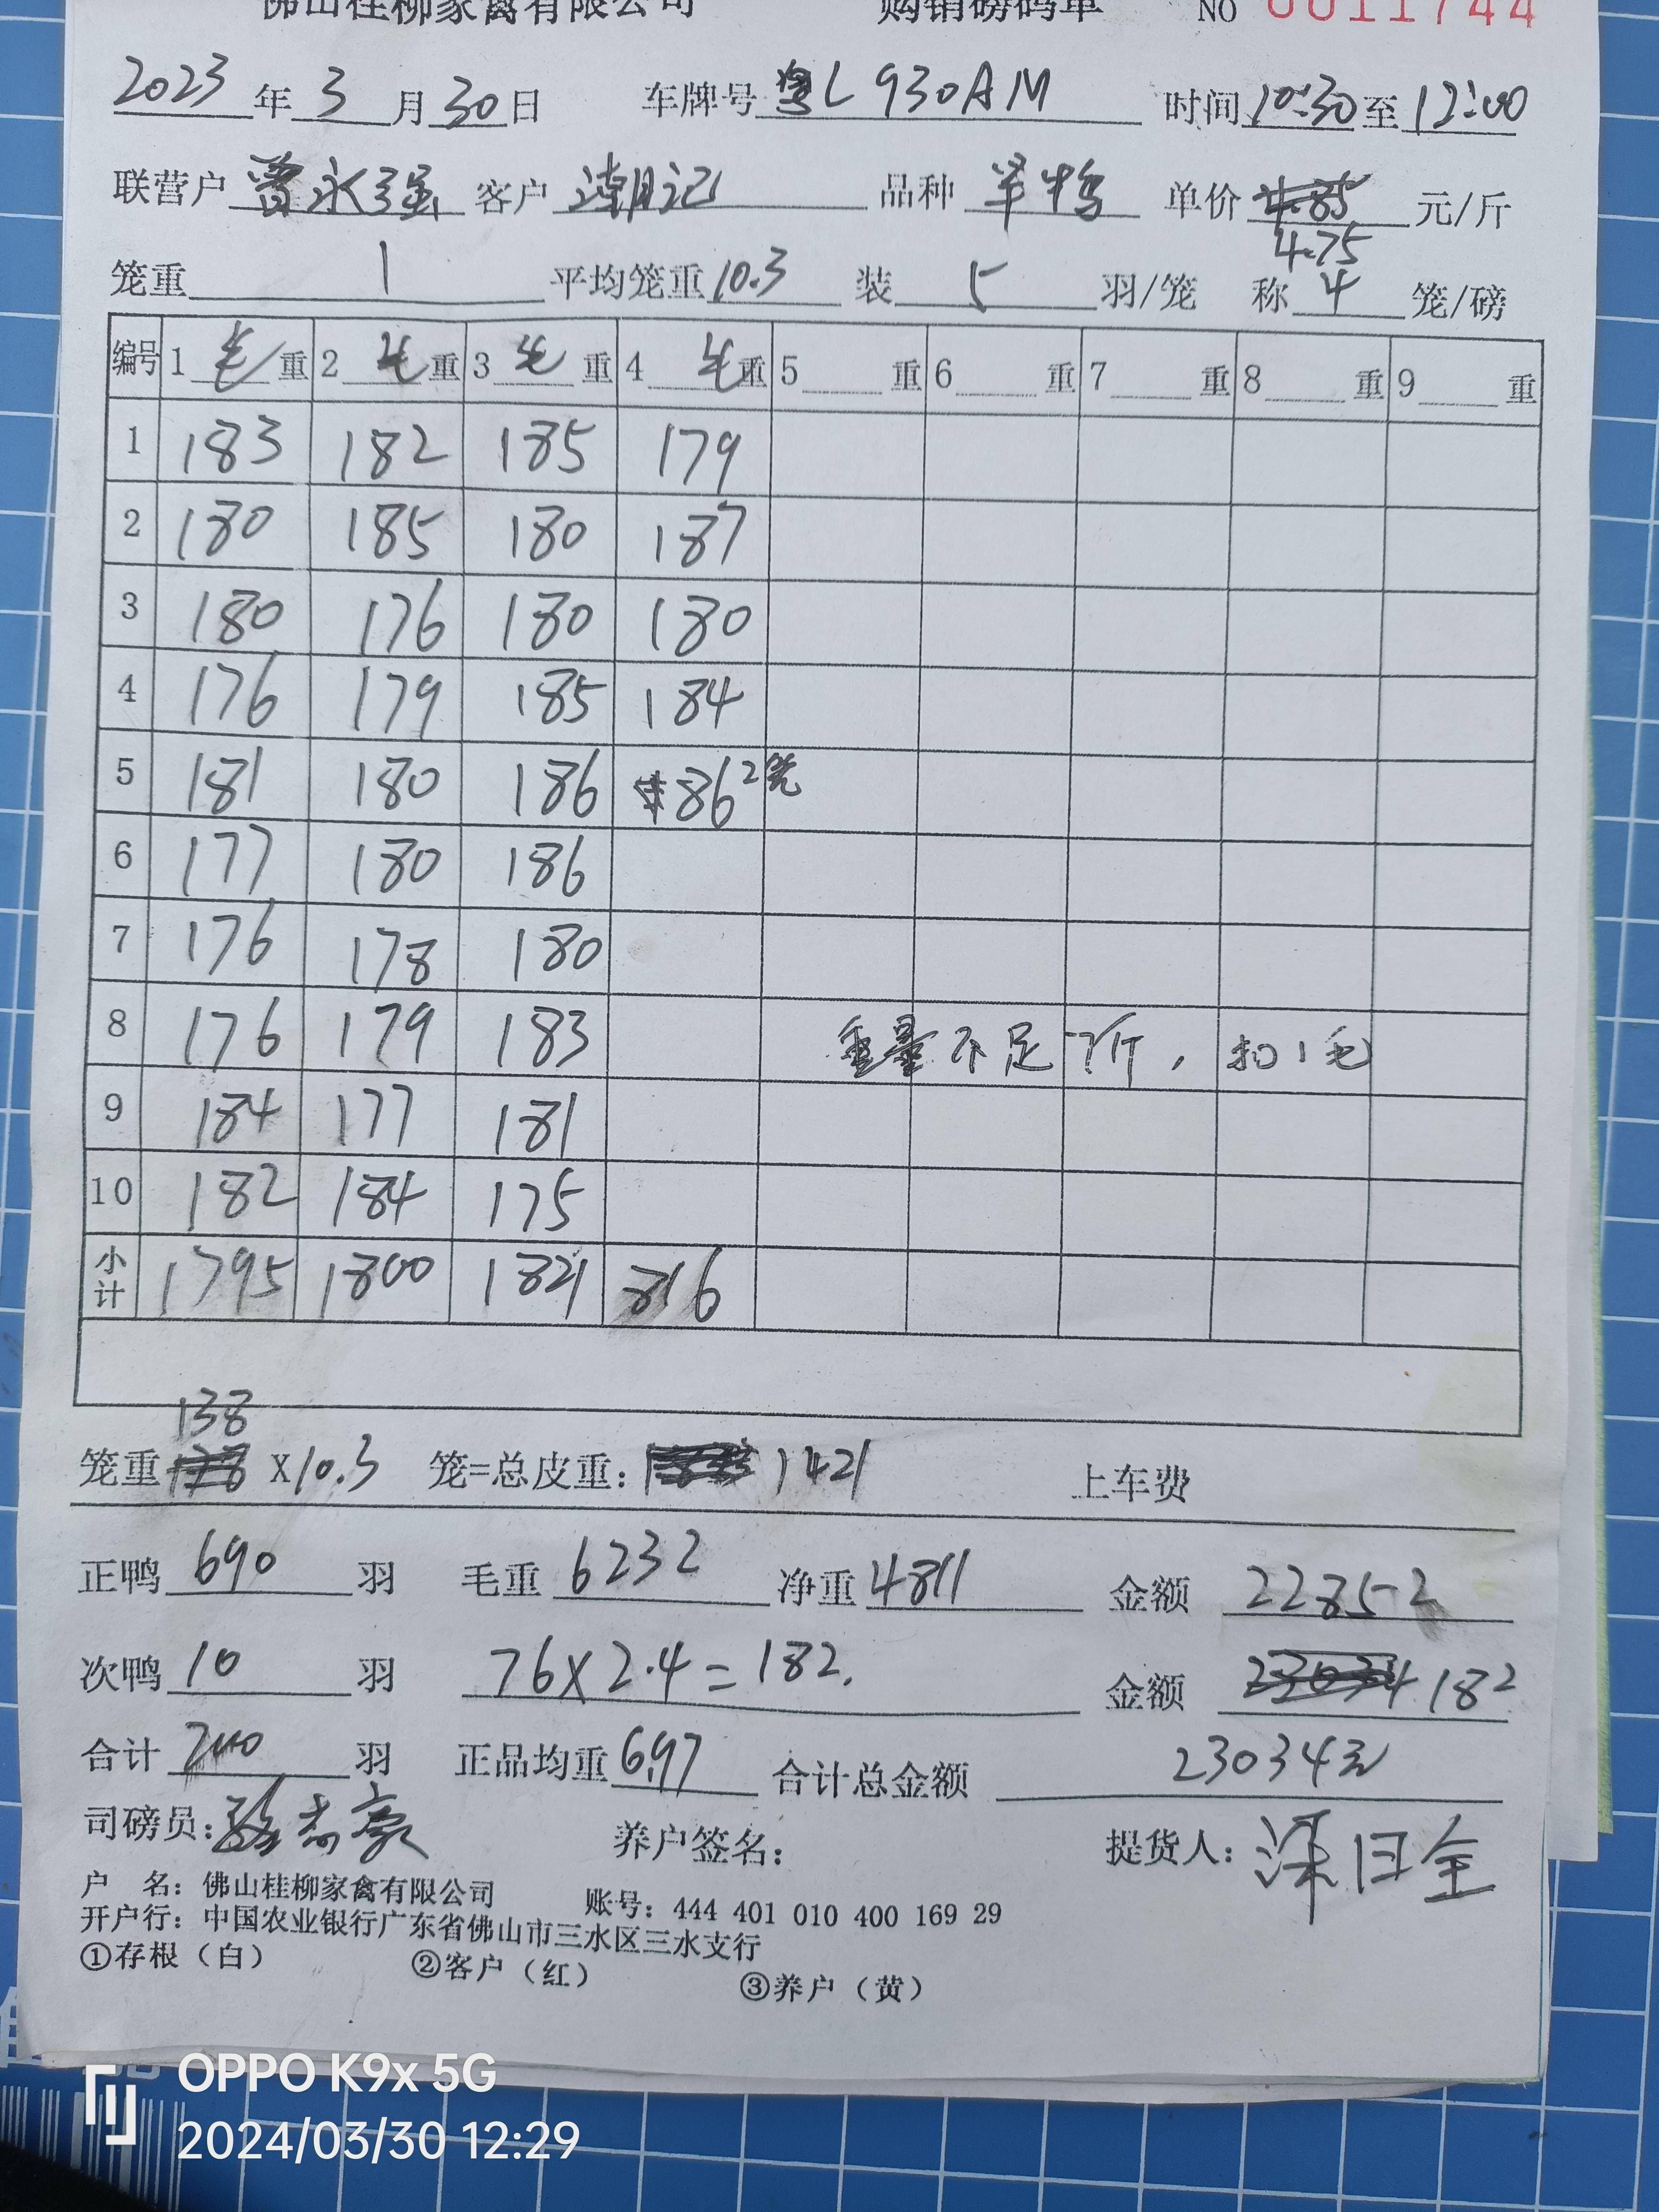 佛山桂柳家禽有限公司 购销磅码单 NO 0011744
2023年3月30日 车牌号 粤L 930AM 时间10:30至12:00
联营户 曾永强 客户 潮记 品种 单价 4.85 元/斤
4.75
笼重 1 平均笼重10.3 装 5 羽/笼 称 4 笼/磅
编号 1 毛 重 2 毛 重 3 毛 重 4 毛 重 5 重 6 重 7 重 8 重 9 重
1 183 182 185 179
2 180 185 180 187
3 180 176 180 180
4 176 179 185 184
5 181 180 186 86 2笼
6 177 180 186
7 176 178 180
8 176 179 183 重量不足7斤，扣1毛
9 184 177 181
10 182 184 175
小计 1795 1800 1821 816
138
笼重 X10.3 笼=总皮重： 1421 上车费
正鸭 690 羽 毛重 6232 净重 4811 金额 22852
次鸭 10 羽 76×2.4=182. 金额 23034 182
合计 700 羽 正品均重 6.97 合计总金额 23034元
司磅员： 养户签名： 提货人：
户 名：佛山桂柳家禽有限公司 账号：444 401 010 400 169 29
开户行：中国农业银行广东省佛山市三水区三水支行
①存根（白） ②客户（红） ③养户（黄）
OPPO K9x 5G
2024/03/30 12:29